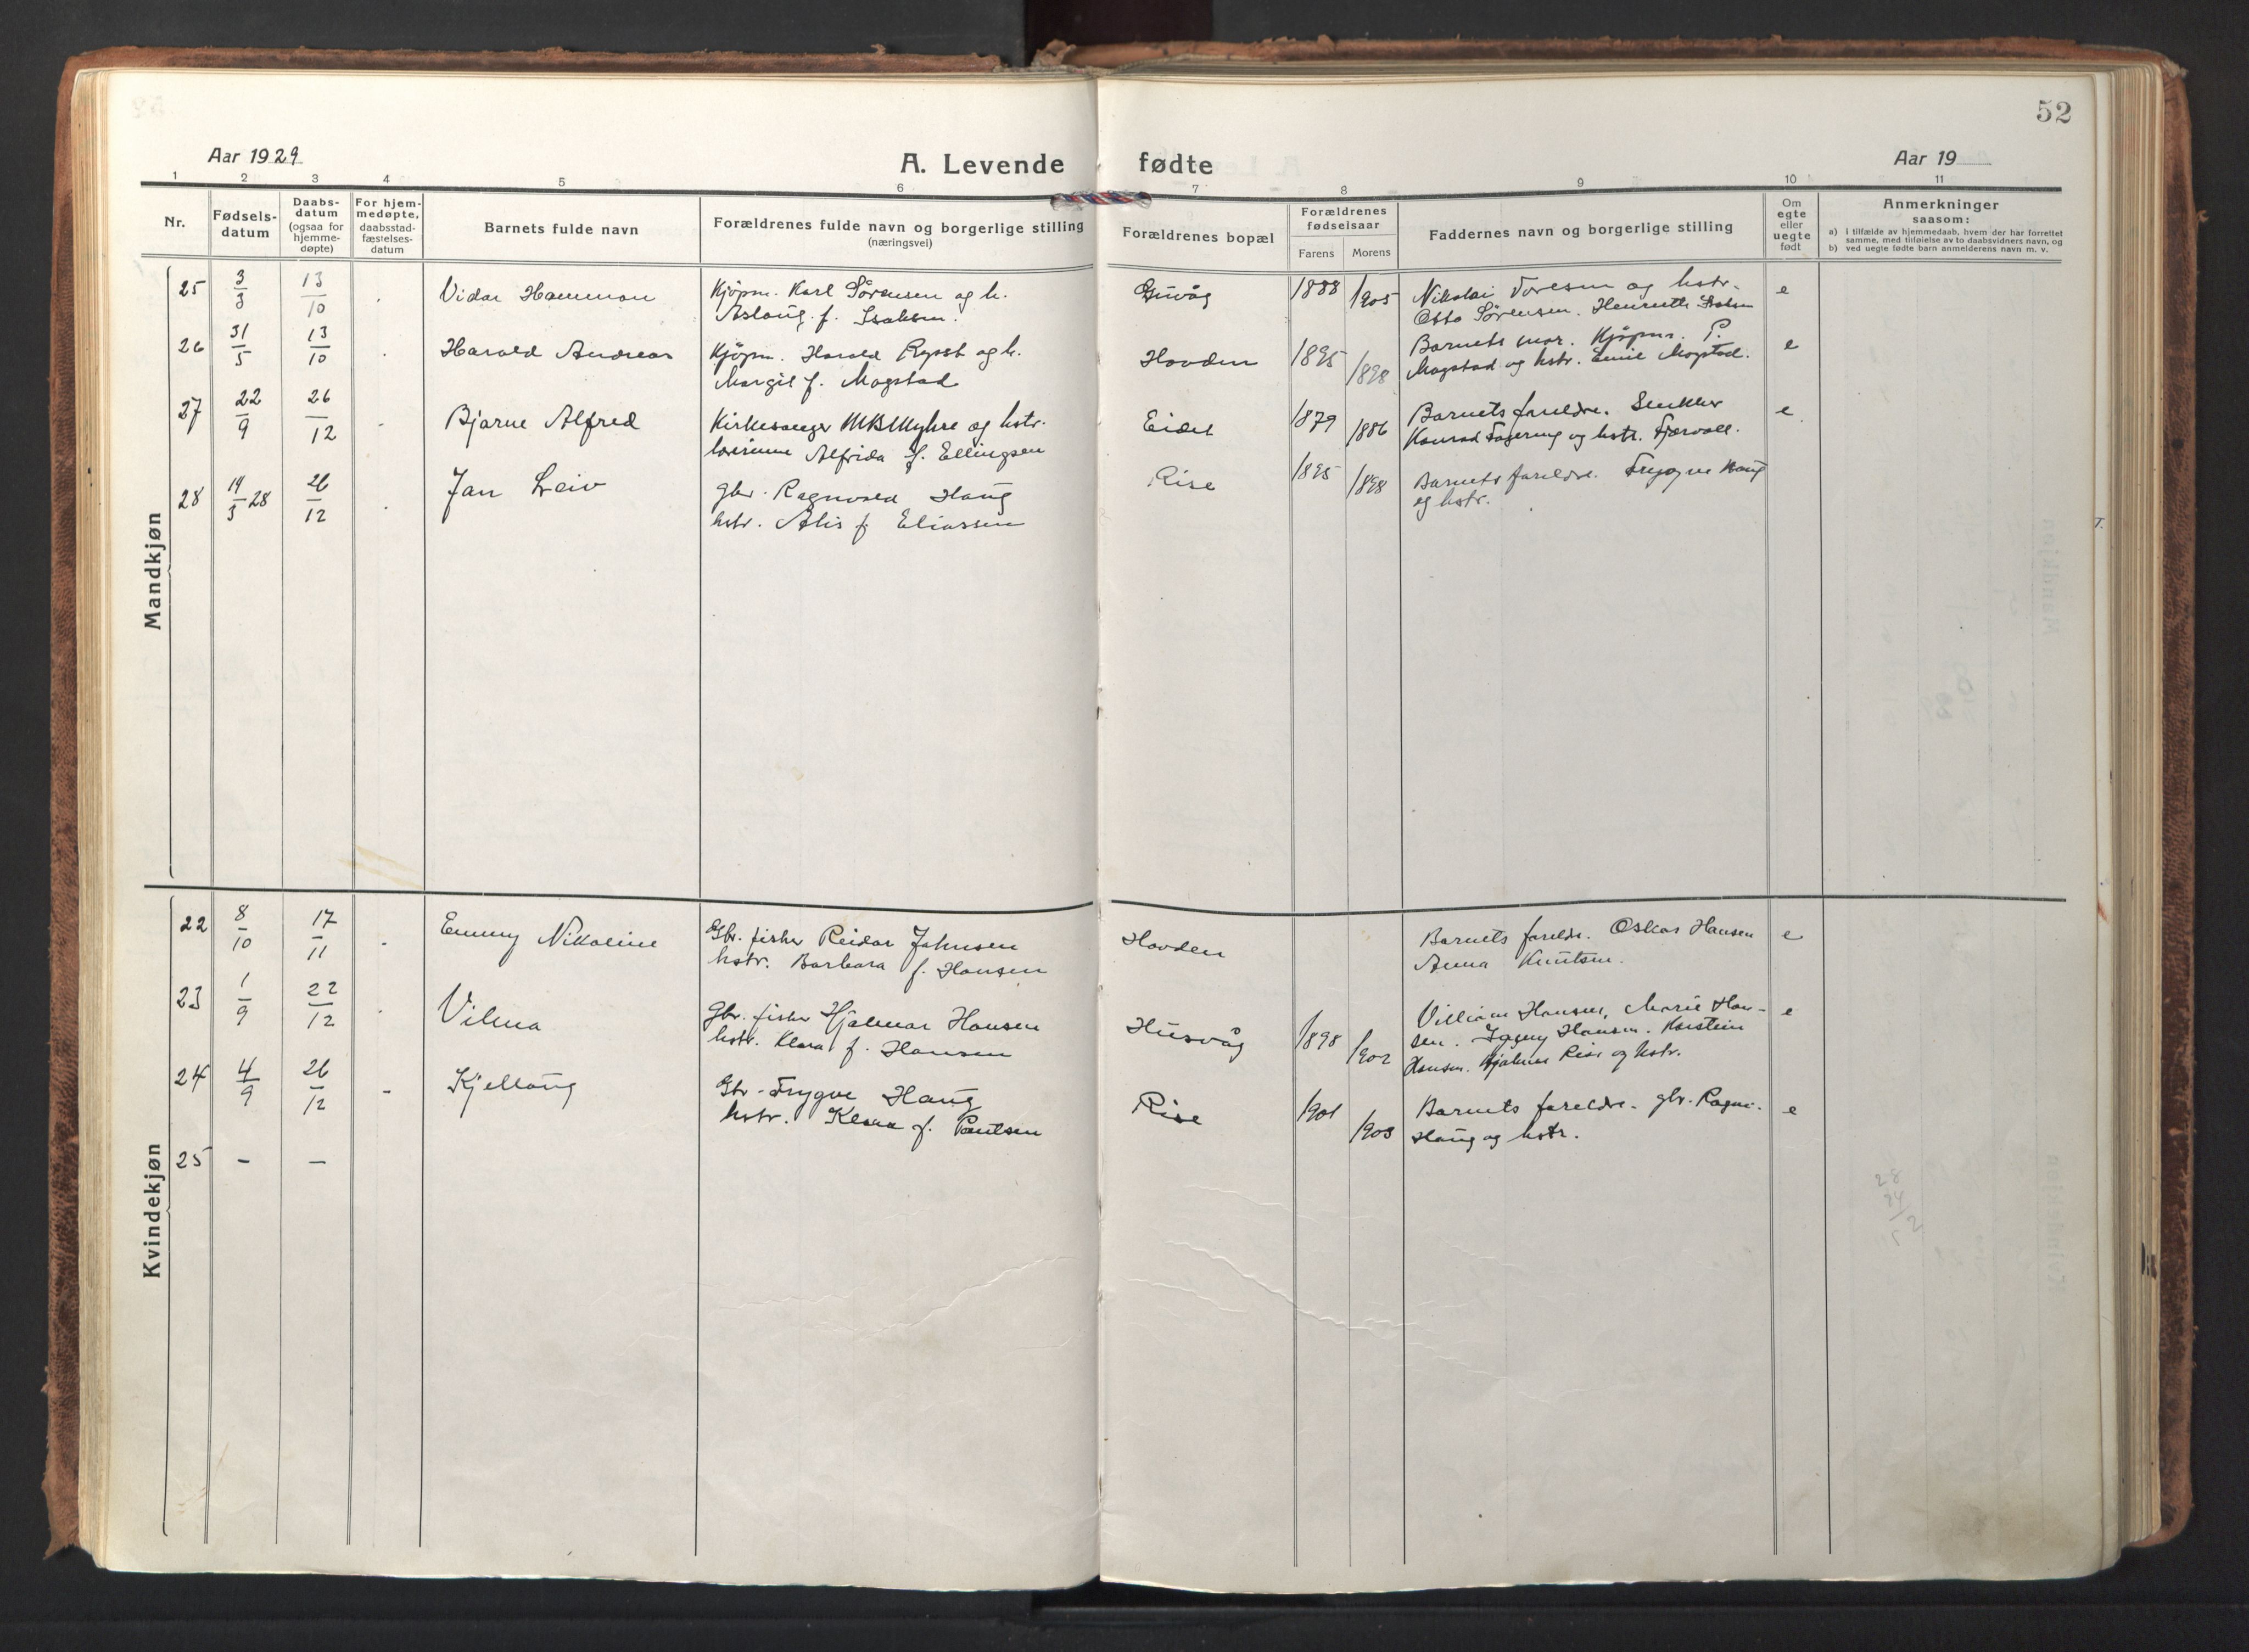 52
Aar 1929
A. Levende fødte
Aar 19
1 2 3 4 5 6 7 8 9 10 11
Nr.
Fødsels-
datum
Daabs-
datum
(ogsaa for
hjemme-
døpte)
For hjem-
medøpte,
daabsstad-
fæstelses-
datum
Barnets fulde navn
Forældrenes fulde navn og borgerlige stilling
(næringsvei)
Forældrenes bopæl
Forældrenes
fødselsaar
Farens Morens
Faddernes navn og borgerlige stilling
Om
egte
eller
uegte
født
Anmerkninger
saasom:
a) i tilfælde av hjemmedaab, hvem der har forrettet
samme, med tilføielse av to daabsvidners navn, og
b) ved uegte fødte barn anmelderens navn m. v.
Mandkjøn
25 3/3 13/10 Vidar Hammon Kjöpm. Karl Sörensen og h. Guvåg 1888 1905 Nikolai Toresen og hstr. e
Aslaug f. Isaksen. Otto Sörensen. Henriette
26 31/5 13/10 Harald Andreas Kjöpm. Harald Rypst og h. Hovden 1895 1898 Barnets mor. Kjöpm. P. e
Margit f. Mogstad Mogstad og hstr. Mogstad.
27 22/9 26/12 Bjarne Alfred Kirkesanger M B Myhre og hstr. Eidet 1879 1886 Barnets foreldre. e
lærerinne Alfrida f. Ellingsen Konrad Fagereng og hstr. Fjærvoll.
28 14/3 28 26/12 Jan Leiv gbr. Ragnvald Haug Rise 1895 1898 Barnets foreldre. Trygve Haug
hstr. Alis f Eliassen og hstr.
Kvindekjøn
22 8/10 17/11 - Emmy Nikoline Gbr. fisker Reidar Johnsen Hovden Barnets foreldr. Oskar Hansen e
hstr. Barbara f. Hansen Anna Knutsen.
23 1/9 22/12 Vilma Gbr. fisker Hjalmar Hansen Husvåg 1898 1902 Villiam Hansen, Marie Han- e
hstr. Klara f. Hansen sen. Hansen. Karstein
Hansen. Hjalmar Rise og hstr.
24 4/9 26/12 - Kjellaug Gbr. Trygve Haug Rise 1901 1903 Barnets foreldre. gbr. Ragnv. e
hstr. Klara f. Paulsen Haug og hstr.
25 - -
28
24